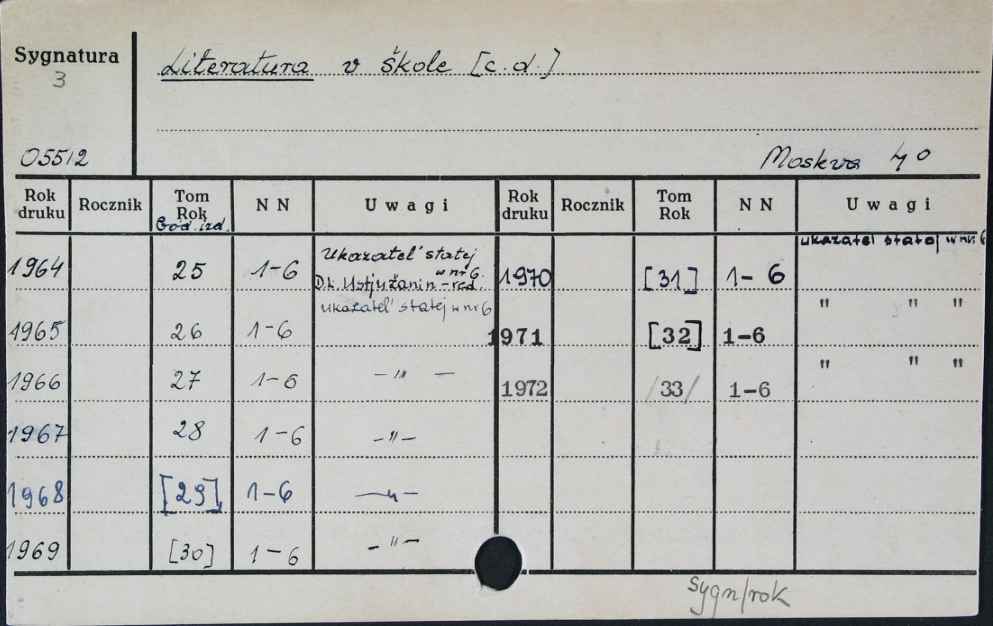 Sygnatura
3
05512
Literatura v škole [c.d.]
Moskva 4°
Rok druku Rocznik Tom Rok NN Uwagi Rok druku Rocznik Tom Rok NN Uwagi
God. izd.
1964 25 1-6 Ukazatel' statej w nr 6.
D.L. Ustjužanin - red.
1965 26 1-6 ukazatel' statej w nr 6
1966 27 1-6 - " -
1967 28 1-6 - " -
1968 [29] 1-6 - " -
1969 [30] 1-6 - " -
1970 [31] 1-6 ukazatel' statej w nr 6
1971 [32] 1-6 " " "
1972 /33/ 1-6 " " "
Sygn/rok